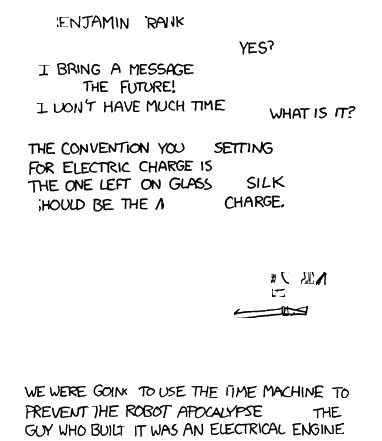 YES?
I BRING A MESSAGE
THE FUTURE!
I DON'T HAVE MUCH TIME
WHAT IS IT?
THE CONVENTION YOU SETTING
FOR ELECTRIC CHARGE IS
THE ONE LEFT ON GLASS SILK
SHOULD BE THE CHARGE.
WE WERE GOING TO USE THE TIME MACHINE TO
PREVENT THE ROBOT APOCALYPSE THE
GUY WHO BUILT IT WAS AN ELECTRICAL ENGINE